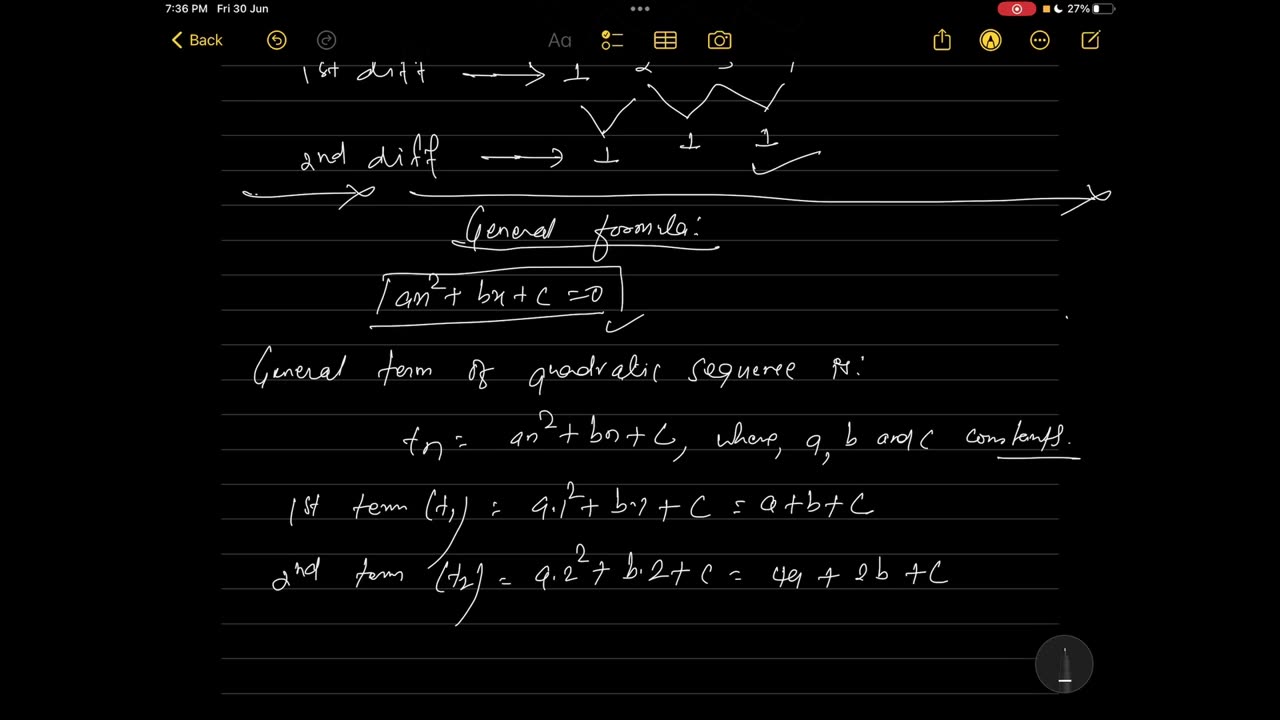 7:36 PM Fri 30 Jun
27%
Back
Aa
1st diff → 1 2
2nd diff → 1 1 1
General formula:
an² + bn + c = 0
General term of quadratic sequence is:
tn = an² + bn + c, where, a, b and c constants.
1st term (t₁) = a.1² + b.1 + c = a + b + c
2nd term (t₂) = a.2² + b.2 + c = 4a + 2b + c